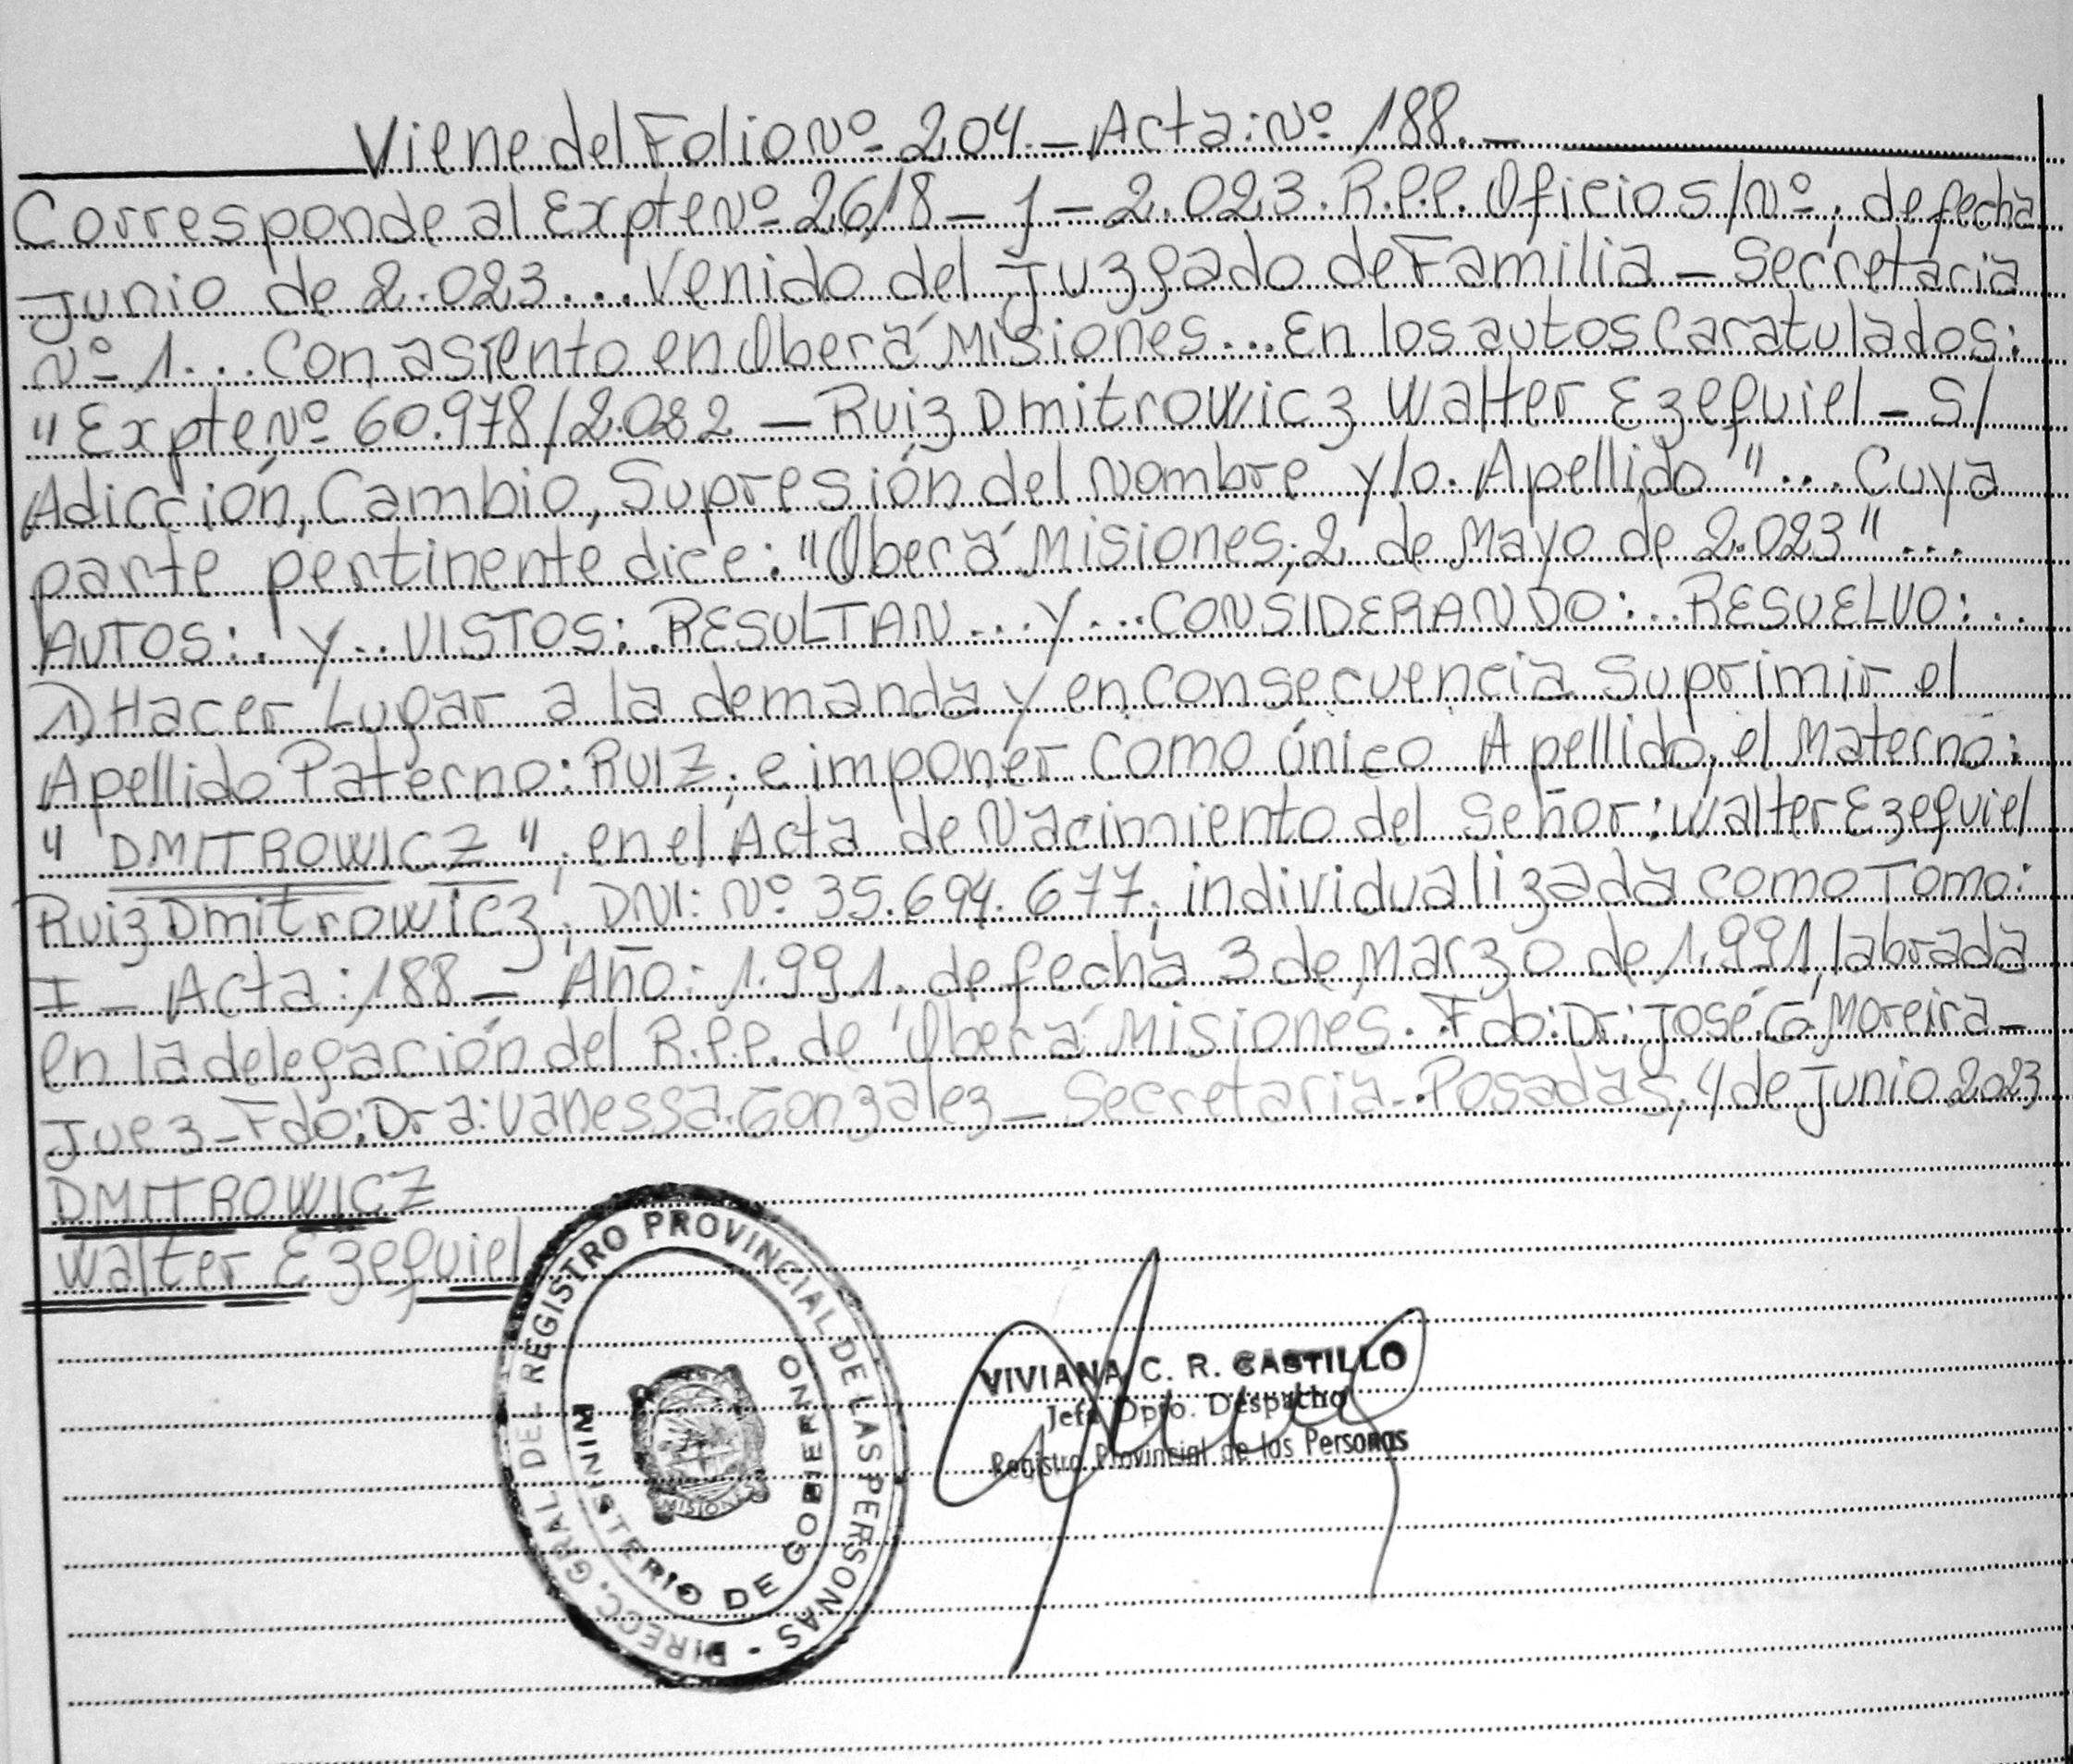 Viene del Folio Nº 204.- Acta: Nº 188.-
Corresponde al Expte Nº 2618 - J - 2.023. R.P.P. Oficio S/Nº, de fecha
Junio de 2.023... Venido del Juzgado de Familia - Secretaria
Nº 1... Con asiento en Oberá Misiones... En los autos Caratulados:
"Expte Nº 60.978/2.022 - Ruiz Dmitrowicz Walter Ezequiel - S/
Adicción, Cambio, Supresión del Nombre y/o. Apellido"... Cuya
parte pertinente dice: "Oberá Misiones, 2 de Mayo de 2.023"...
AUTOS:. Y.. VISTOS:. RESULTAN... Y... CONSIDERANDO:.. RESUELVO:..
1) Hacer Lugar a la demanda y en consecuencia Suprimir el
Apellido Paterno: RUIZ, e imponer como único Apellido, el Materno:
" DMITROWICZ ", en el Acta de Nacimiento del Señor: Walter Ezequiel
Ruiz Dmitrowicz, DNI: Nº 35.694.677, individualizada como Tomo:
I - Acta: 188 - Año: 1.991. de fecha 3 de Marzo de 1.991, labrada
en la delegación del R.P.P. de Oberá Misiones. Fdo: Dr: José. G Moreira -
Juez - Fdo: Dra: Vanessa. Gonzalez - Secretaria. Posadas, 4 de Junio 2023
DMITROWICZ
Walter Ezequiel
DIRECC. GRAL DEL REGISTRO PROVINCIAL DE LAS PERSONAS -
MINISTERIO DE GOBIERNO
MISIONES
VIVIANA C. R. CASTILLO
Jefa Dpto. Despacho
Registro Provincial de las Personas